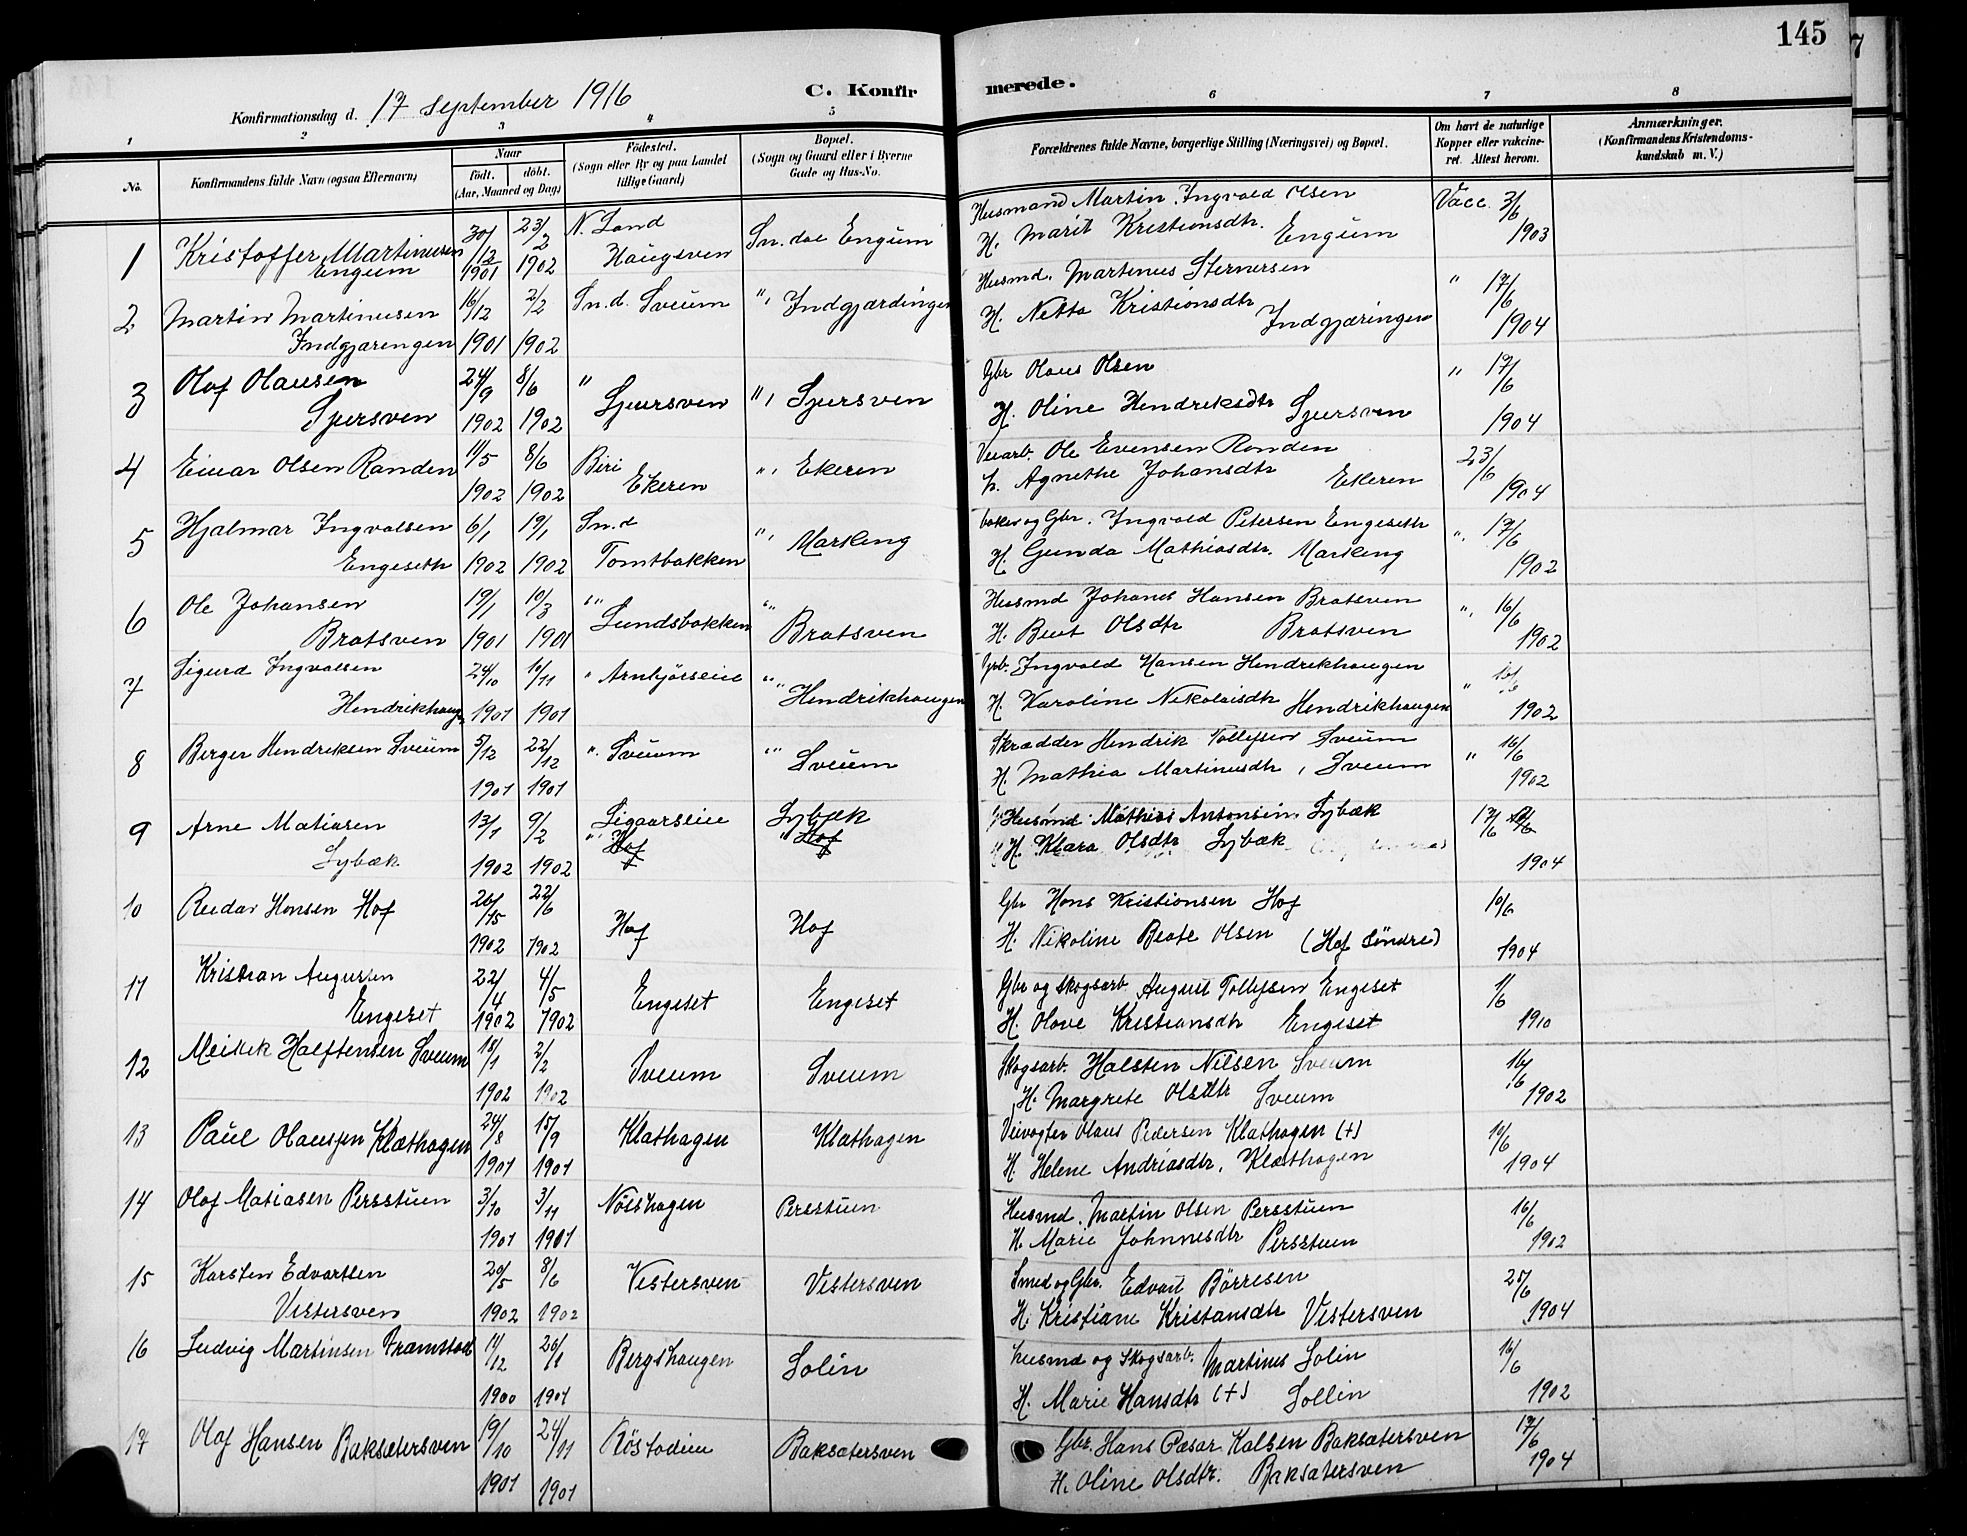 145
7
Konfirmationsdag d. 17 September 1916
C. Konfir
merede.
1 2 3 4 5 6 7 8
No.
Konfirmandens fulde Navn (ogsaa Efternavn)
Naar
født. døbt.
(Aar, Maaned og Dag)
Fødested.
(Sogn eller By og paa Landet
tillige Gaard)
Bopæl.
(Sogn og Gaard eller i Byerne
Gade og Hus-No.
Forældrenes fulde Navne, borgerlige Stilling (Næringsvei) og Bopæl.
Om havt de naturlige
Kopper eller vakcine-
ret. Attest herom.
Anmærkninger.
(Konfirmandens Kristendoms-
kundskab m. V.)
1 Kristoffer Martinusen 30/12 23/2 N. Land Sn. dal Engum Husmand Martin Ingvald Olsen Vacc. 3/6
Engum 1901 1902 Haugsven H. Marit Kristiansdtr. Engum 1903
2 Martin Martinusen 16/12 2/2 Sn. d. Sveum " Indgjærdingen Husmd. Martinus Steinersen " 17/6
Indgjærengen 1901 1902 H. Netta Kristiansdtr Indgjæringen 1904
3 Olaf Olausen 24/9 8/6 " Sjursven " Sjursven Gbr Olaus Olsen " 17/6
Sjursven 1902 1902 H. Oline Hendriksdtr Sjursven 1904
4 Einar Olsen Randen 11/5 8/6 Biri " Ekeren Veiarb. Ole Evensen Randen 23/6
1902 1902 Ekeren h. Agnethe Johansdtr Ekeren 1904
5 Hjalmar Ingvalsen 6/1 19/1 Sn. d " Markeng baker og Gbr. Ingvald Petersen Engeseth " 17/6
Engeseth 1902 1902 Tomtbakken H. Gunda Mathiasdtr. Markeng 1902
6 Ole Johansen 19/1 10/3 " Lundsbakken " Husmd Johanes Hansen Bratsven " 16/6
Bratsven 1901 1901 Bratsven H. Beut Olsdtr Bratsven 1902
7 Sigurd Ingvalsen 24/10 10/11 " " Hendrikhaugen Ingvald Hansen Hendrikhaugen " 16/6
Hendrikhaug 1901 1901 H. Karoline Nikolaisdtr Hendrikhaugen 1902
8 Berger Hendriksen Sveum 5/12 22/12 " Sveum " Sveum Skrædder Hendrik Tollefsen Sveum " 16/6
1901 1901 H. Mathea Martinusdtr, Sveum 1902
9 Arne Matiasen 13/1 9/2 Sigaarseie Lybæk Husmd Mathias Antonsen Lybæk 17/6
Lybæk 1902 1902 " Hof " Hof H. Klara Olsdtr Lybæk 1904
10 Reidar Hansen Hof 22/6 Hof Hof Gbr Hans Kristiansen Hof 10/6
1902 1902 H. Nikoline Beate Olsen (Hof Søndre) 1904
11 Kristian Augustsen 22/4 4/5 Engeset Engeset Gbr og Skogsarb. August Tollefsen Engeset 1/6
Engeset 1902 1902 H. Olave Kristiansdtr Engeset 1910
12 Halftensen Sveum 18/1 2/2 Sveum Sveum Skogsarb. Halsten Nilsen Sveum 16/6
1902 1902 H. Margrete Olsdtr Sveum 1902
13 Paul Olausen Klæthagen 24/8 15/9 Klæthagen Klæthagen Veivogter Olaus Pedersen Klæthagen (+) 14/6
1901 1901 H. Helene Andriasdtr. Klæthagen 1904
14 Olaf Matiasen Persstuen 3/10 3/11 Nøishagen Persstuen Husmd. Martin Olsen Persstuen 16/6
1901 1901 H. Marie Johnnesdtr Persstuen 1902
15 Karsten Edvartsen 20/5 8/6 Vestersven Vestersven Smed og Gbr. Edvart Børresen 25/6
Vestersven 1902 1902 H. Kristiane Kristansdtr Vestersven 1904
16 Ludvig Martinsen Framstad 11/12 26/1 Bergshaugen Solin husmd og Skogsarb. Martinus Solin 16/6
1900 1901 H. Marie Hansdtr (+) Sollin 1902
17 Olaf Hansen Baksætersven 19/10 24/11 Røstodien Baksætersven Gbr. Hans Kalsen Baksætersven 17/6
1901 1901 H. Oline Olsdtr. Baksætersven 1904